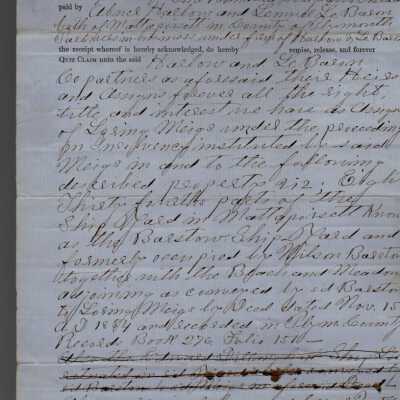 paid by Abner Harlow and Lemuel Le Baron
both of Mattapoisett in County of Plymouth
Partners in business under firm of Harlow & Le Baron
the receipt whereof is hereby acknowledged, do hereby remise, release, and forever
QUIT CLAIM unto the said Harlow and Le Baron
Copartners as aforesaid there Heirs
and Assigns forever all the right
title and interest we have as Assignees
of Loring Meigs under the proceedings
in Insolvency instituted by said
Meigs in and to the following
described property viz, Eight
Thirty fourths parts of the
Ship Yard in Mattapoisett Known
as the Barstow Ship Yard and
formerly occupied by Wilson Barstow
together with the Beach and Meadow
adjoining as conveyed by sd Barstow
to Loring Meigs by Deed dated Nov. 15
AD 1854 and recorded in Plym County
Record Book 276 Folio 151